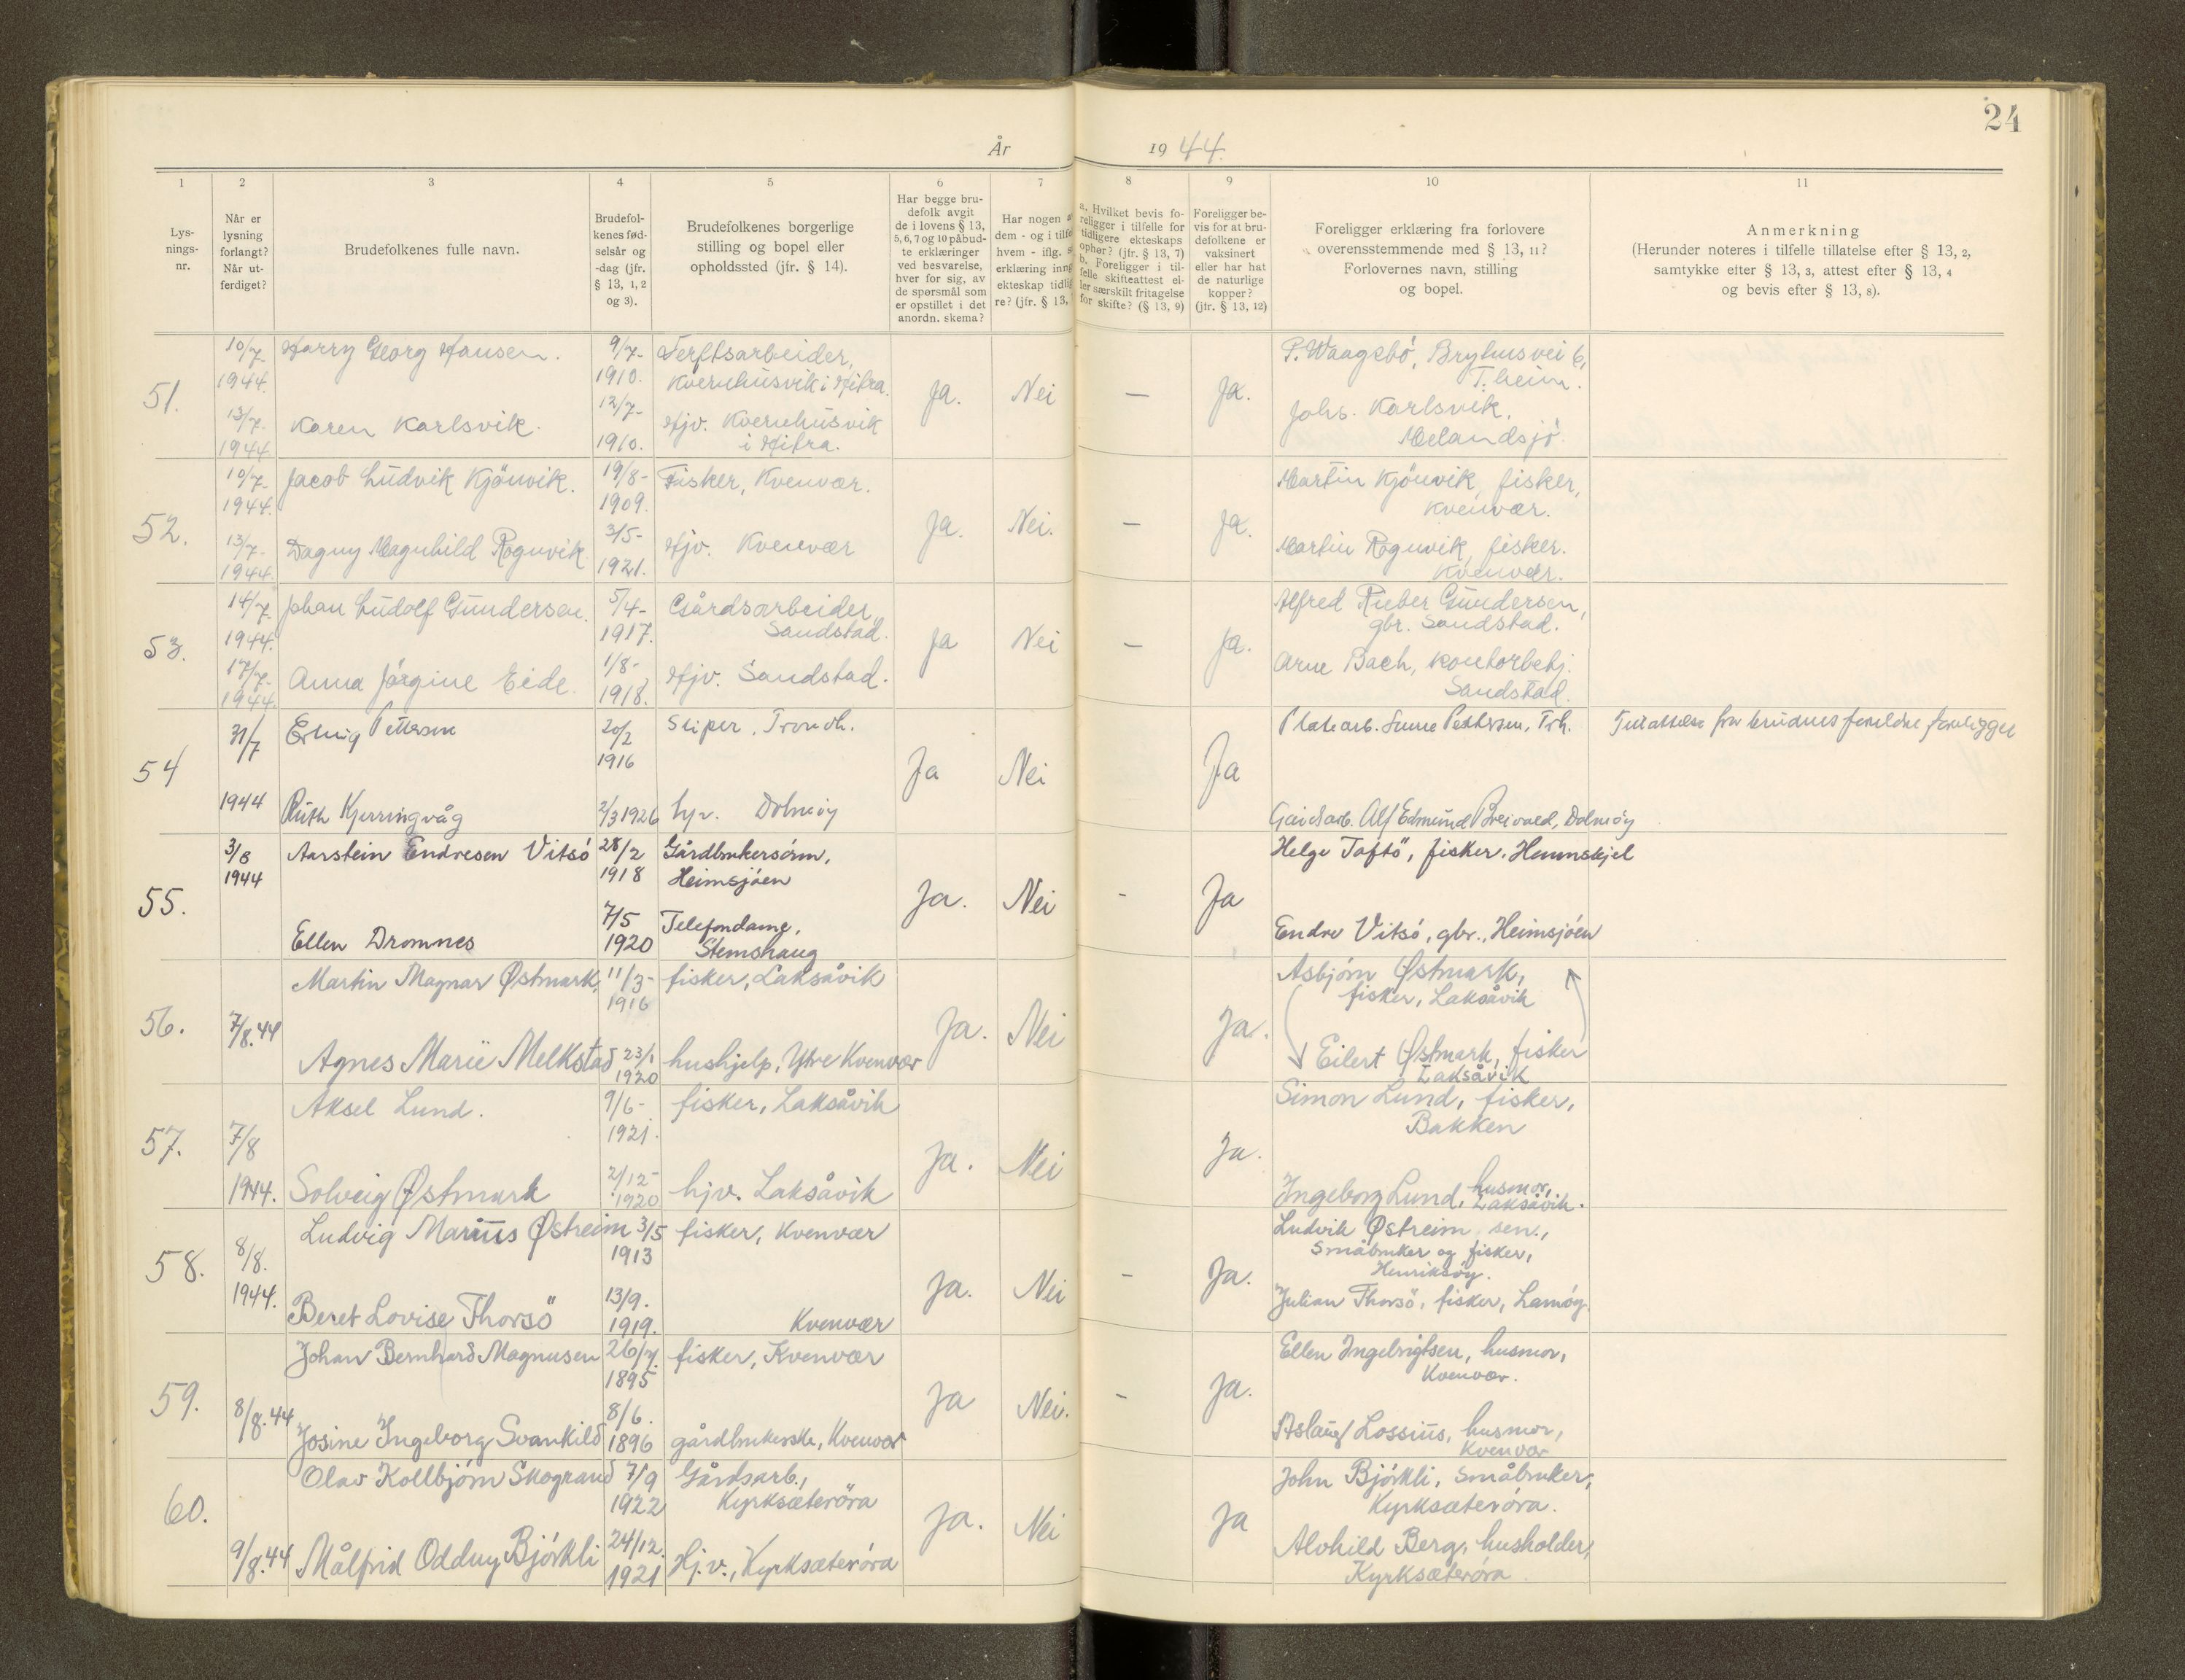 24
År 1944.
1 2 3 4 5 6 7 8 9 10 11
Lys-
nings-
nr.
Når er
lysning
forlangt?
Når ut-
ferdiget?
Brudefolkenes fulle navn.
Brudefol-
kenes fød-
selsår og
-dag (jfr.
§ 13, 1, 2
og 3).
Brudefolkenes borgerlige
stilling og bopel eller
opholdssted (jfr. § 14).
Har begge bru-
defolk avgit
de i lovens § 13,
5, 6, 7 og 10 påbud-
te erklæringer
ved besvarelse,
hver for sig, av
de spørsmål som
er opstillet i det
anordn. skema?
Har nogen a
dem - og i tilfe
hvem - iflg. s
erklæring inng
ekteskap tidlig
re? (jfr. § 13,
a. Hvilket bevis fo-
religger i tilfelle for
tidligere ekteskaps
ophør? (jfr. § 13, 7)
b. Foreligger i til-
felle skifteattest el-
ler særskilt fritagelse
for skifte? (§ 13, 9)
Foreligger be-
vis for at bru-
defolkene er
vaksinert
eller har hat
de naturlige
kopper?
(jfr. § 13, 12)
Foreligger erklæring fra forlovere
overensstemmende med § 13, 11?
Forlovernes navn, stilling
og bopel.
Anmerkning
(Herunder noteres i tilfelle tillatelse efter § 13, 2,
samtykke efter § 13, 3, attest efter § 13, 4
og bevis efter § 13, 8).
51.
10/7-
1944.
13/7-
1944
Harry Georg Hansen.
Karen Karlsvik.
9/7-
1910.
12/7-
1910.
Verftsarbeider,
Kvernhusvik i Hitra.
Hjv. Kvernhusvik
i Hitra.
Ja.
Nei
—
Ja.
P. Waagsbö, Bryhusvei 6,
T.heim.
Johs. Karlsvik,
Melandsjö.
52.
10/7-
1944.
13/7-
1944.
Jacob Ludvik Kjönvik.
Dagny Magnhild Rognvik
19/8-
1909.
3/5-
1921.
Fisker, Kvenvær.
Hjv. Kvenvær
Ja.
Nei.
—
Ja.
Martin Kjönvik, fisker,
Kvenvær.
Martin Rognvik, fisker.
Kvenvær.
53.
14/7-
1944.
17/7-
1944.
Johan Ludolf Gundersen.
Anna Jörgine Eide.
5/4-
1917.
1/8-
1918.
Gårdsarbeider,
Sandstad.
Hjv. Sandstad.
Ja
Nei
—
Ja.
Alfred Rieber Gundersen,
gbr. Sandstad.
Arne Bach, kontorbetj.
Sandstad.
54
31/7
1944
Erling Pettersen
Ruth Kjerringvåg
20/2
1916
2/3 1926
Sliper, Trondh.
hjv. Dolmöy
Ja
Nei
Ja
Platearb. Sune Pettersen, Trh.
Gårdsarb. Alf Edmund Breivold, Dolmöy
Tillatelse fra brudens foreldre foreligger
55.
3/8
1944
Aarstein Endresen Vitsö
Ellen Dromnes
28/2
1918
7/5
1920
Gårdbrukersönn,
Heimsjöen
Telefondame,
Stemshaug
Ja.
Nei
-
Ja
Helge Toftö, fisker. Hemnskjel
Endre Vitsö, gbr., Heimsjöen
56.
7/8.44
Martin Magnar Østmark,
Agnes Marie Melkstad
11/3-
1916
23/1
1920
fisker, Laksåvik
hushjelp, Ytre Kvenvær
Ja.
Nei
Ja.
Asbjörn Østmark,
fisker, Laksåvik
Eilert Østmark, fisker
Laksåvik
57.
7/8
1944.
Aksel Lund.
Solveig Østmark
9/6-
1921.
2/12-
1920
fisker, Laksåvik
hjv. Laksåvik
Ja.
Nei
Ja.
Simon Lund, fisker,
Bakken
Ingeborg Lund, husmor,
Laksåvik.
58.
8/8.
1944.
Ludvig Marius Østreim
Beret Lovise Thorsö
3/5
1913
13/9.
1919.
fisker, Kvenvær
Kvenvær
Ja.
Nei
-
Ja.
Ludvik Østreim sen.,
Småbruker og fisker,
Henriksöy.
Julian Thorsö, fisker, Lamöy.
59.
8/8.44
Johan Bernhard Magnusen
Josine Ingeborg Svankild
26/7.
1895
8/6.
1896
fisker, Kvenvær
gårdbrukerske, Kvenvær
Ja
Nei.
-
Ja.
Ellen Ingebrigtsen, husmor,
Kvenvær.
Aslaug Lossius, husmor,
Kvenvær
60.
9/8.44
Olav Kollbjörn Skogrand
Målfrid Oddny Björkli
7/9
1922
24/12.
1921
Gårdsarb.,
Kyrksæteröra
Hj.v., Kyrksæteröra
Ja.
Nei
Ja
John Björkli, Småbruker,
Kyrksæteröra.
Alvhild Berg, husholder,
Kyrksæteröra.